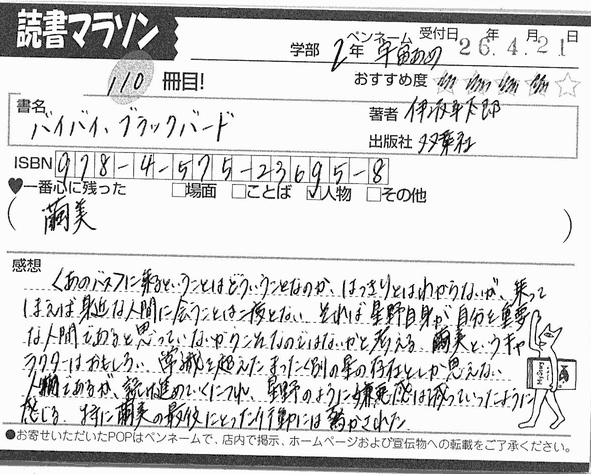 読書マラソン
学部 2年 ペンネーム 宇宙あめ 受付日 26年4月21日
110冊目!
おすすめ度 ☆☆☆☆☆
書名
バイバイ、ブラックバード
著者 伊坂幸太郎
出版社 双葉社
ISBN 978-4-575-23695-8
♥一番心に残った □場面 □ことば ☑人物 □その他
(繭美)
感想
〈あのバス〉に乗るということはどういうことなのか、はっきりとはわからないが、乗って
しまえば身近な人間に会うことは二度とない。それは星野自身が自分を重要
な人間であると思っていないからこそなのではないかと考える。繭美というキャ
ラクターはおもしろい。常識を超えたまったく別の星の存在としか思えない
人物であるが、読み進めていくにつれ、星野のように嫌悪感は減っていったように
感じる。特に繭美の最後にとった行動には驚かされた。
●お寄せいただいたPOPはペンネームで、店内で掲示、ホームページおよび宣伝物への転載をご了承ください。